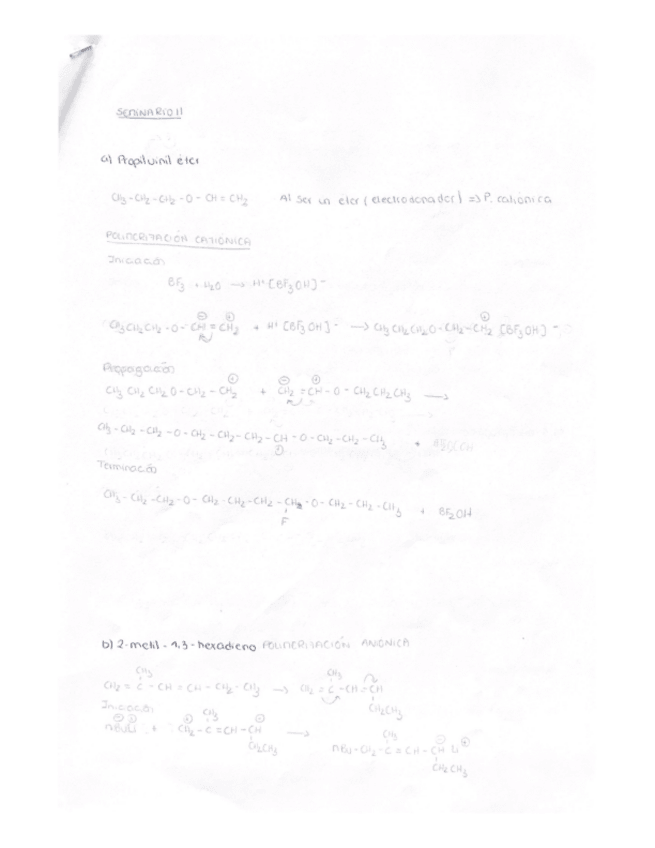 SEMINARIO 11
a) Propilvinil éter
CH3-CH2-CH2-O-CH=CH2 Al ser un eter (electrodonador) => P. cationica
POLIMERIZACIÓN CATIONICA
Iniciación
BF3 + H2O → H+[BF3OH]-
CH3CH2CH2-O-CH=CH2 + H+[BF3OH]- → CH3CH2CH2O-CH2-CH2 [BF3OH]-
Propagación
CH3CH2CH2O-CH2-CH2 + CH2=CH-O-CH2CH2CH3 →
CH3-CH2-CH2-O-CH2-CH2-CH2-CH-O-CH2-CH2-CH3 +
Terminación
CH3-CH2-CH2-O-CH2-CH2-CH2-CH2-O-CH2-CH2-CH3 + BF2OH
F
b) 2-metil-1,3-hexadieno POLIMERIZACIÓN ANIONICA
CH3 CH3
CH2=C-CH=CH-CH2-CH3 → CH2=C-CH-CH
CH2CH3
Iniciación
CH3 CH3
nBuLi + CH2-C=CH-CH → nBu-CH2-C=CH-CH Li
CH2CH3 CH2CH3